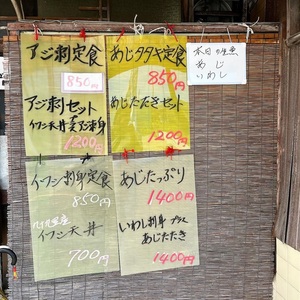 アジ刺定食
850円
アジ刺セット
イワシ天丼とアジ刺身
1200円
あじタタキ定食
850円
あじたたきセット
1200円
イワシ刺身定食
850円
イワシ天丼
700円
あじたっぷり
1400円
いわし刺身 プラス
あじたたき
1400円
本日の生魚
あじ
いわし